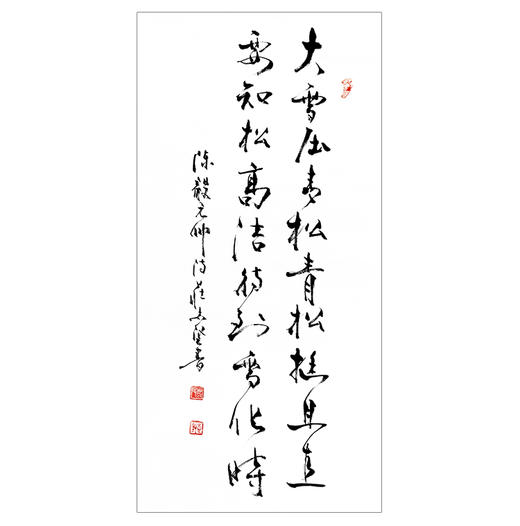 大雪压青松青松挺且直
要知松高洁待到雪化時
陈毅元帅诗书